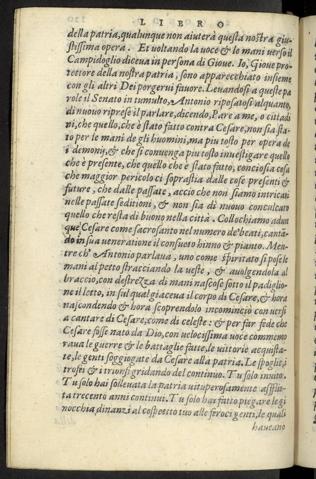 LIBRO
della patria, qualunque non aiuterà questa nostra giu-
stissima opera. Et voltando la uoce & le mani uerso il
Campidoglio diceua in persona di Gioue. Io, Gioue pro-
tettore della nostra patria, sono apparecchiato insieme
con gli altri Dei porgerui fauore. Leuandosi a queste pa
role il Senato in tumulto, Antonio riposatosi alquanto,
di nuouo riprese il parlare, dicendo, Pare a me, o cittadi
ni, che quello, che è stato fatto contra Cesare, non sia sta
to per le mani de gli huomini, ma piu tosto per opera de
i demoni, & che si conuenga piu tosto inuestigare quello
che è presente, che quello che è stato fatto, conciosia cosa
che maggior pericolo ci soprastia dalle cose presenti &
future, che dalle passate, accio che non siamo intricati
nelle passate seditioni, & non sia di nuouo conculcato
quello che resta di buono nella città. Collochiamo adun
que Cesare come sacrosanto nel numero de' beati, cantā-
do in sua ueneratione il consueto hinno & pianto. Men-
tre ch' Antonio parlaua, uno come spiritato si pose le
mani al petto stracciando la ueste, & auolgendola al
braccio, con destrezza di mani nascose sotto il padiglio-
ne il letto, in sul qual giaceua il corpo di Cesare, & hora
nascondendo & hora scoprendolo incominciò con uersi
a cantare di Cesare, come di celeste: & per far fede che
Cesare fosse nato da Dio, con uelocissima uoce commemo
raua le guerre & le battaglie fatte, le uittorie acquista-
te, le genti soggiogate da Cesare alla patria. Le spoglie, i
trofei & i trionfi gridando del continuo. Tu solo inuitto.
Tu solo hai solleuata la patria uituperosamente afflit-
ta trecento anni continui. Tu solo hai fatto piegare le gi
nocchia dinanzi al cospetto tuo alle feroci genti, le quali
haueano